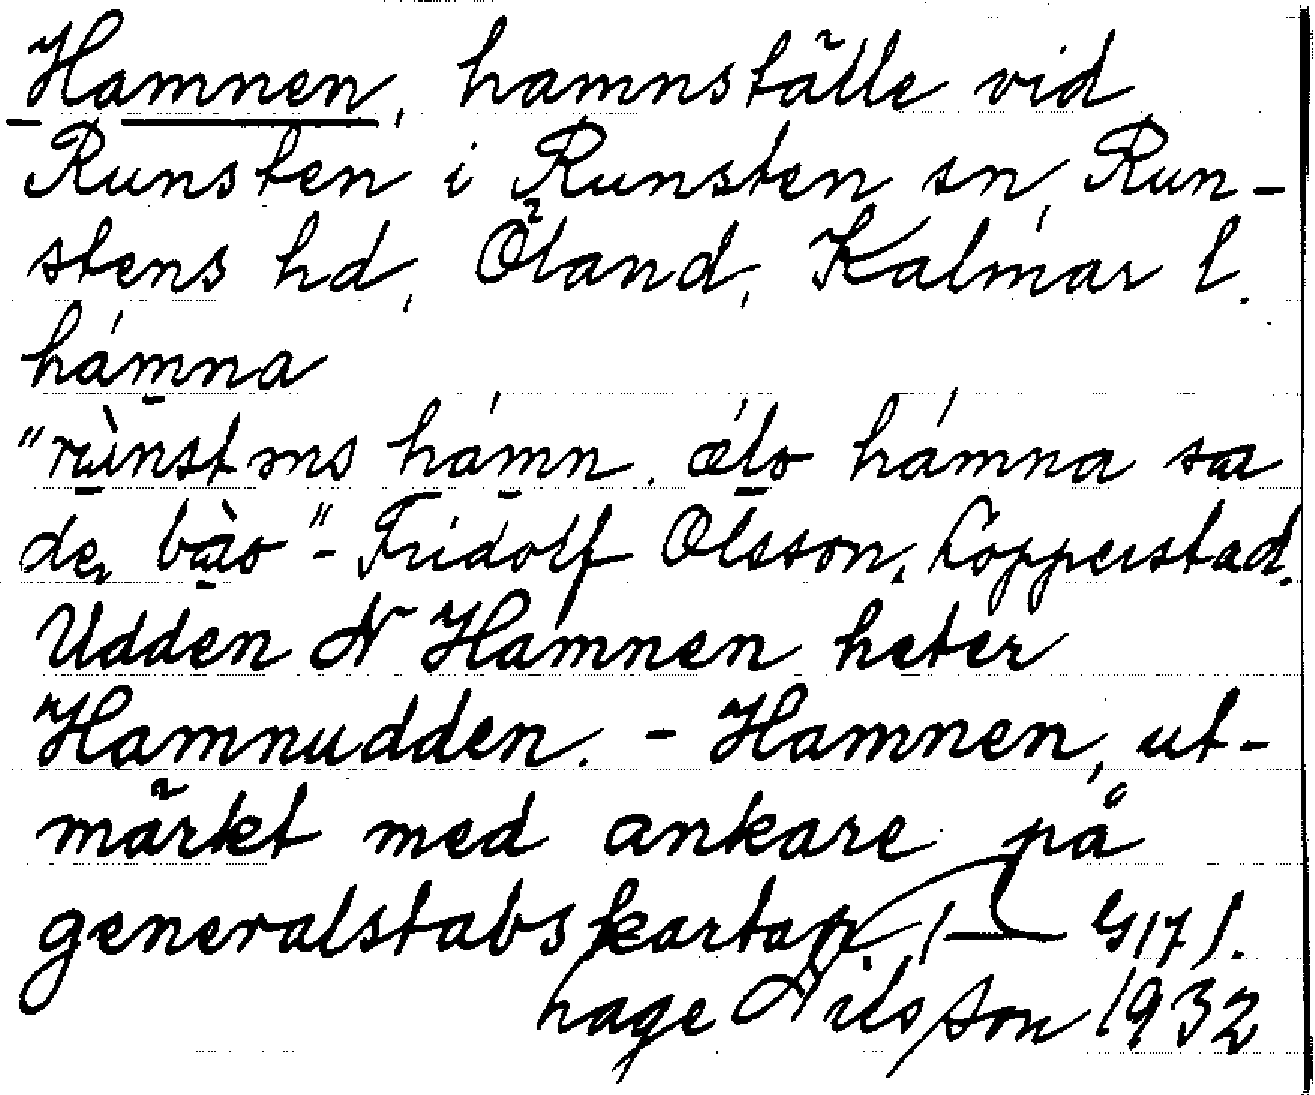 Hamnen, hamnställe vid
Runsten i Runsten sn, Run-
stens hd, Öland, Kalmar l.
hámna
"rùnstms hámn. álo hámna sa
de bào" - Fridolf Olsson, Lopperstad.
Udden N Hamnen heter
Hamnudden. - Hamnen, ut-
märkt med ankare på
generalstabskartan.
Hage Nilsson 1932